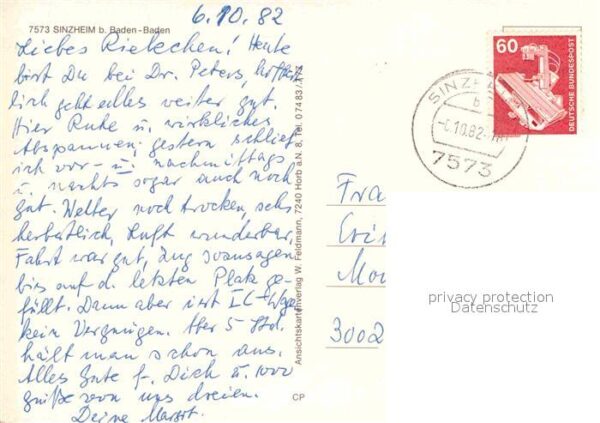 6.10.82
7573 SINZHEIM b. Baden-Baden
Liebes Rielechen! Heute
bist Du bei Dr. Peters, hoffent-
lich geht alles weiter gut.
Hier Ruhe u. wirkliches
Abspannen, gestern schlief
ich vor- u. nachmittags
u. nachts sogar auch noch
gut. Wetter noch trocken, sehr
herbstlich, Luft wunderbar,
Fahrt war gut, Zug sozusagen
bis auf d. letzten Platz ge-
füllt. Dann aber ist IC-
kein Vergnügen. Aber 5 Std.
hält man schon aus.
Alles Gute f. Dich u. 1000
grüße von uns dreien.
Deine Margot.
Ansichtskartenverlag W. Feldmann, 7240 Horb a.N. 8, Tel. 07483/
CP
60
DEUTSCHE BUNDESPOST
SINZ
b
-6.10.82-18
7573
Fra
Mo
3002
privacy protection
Datenschutz